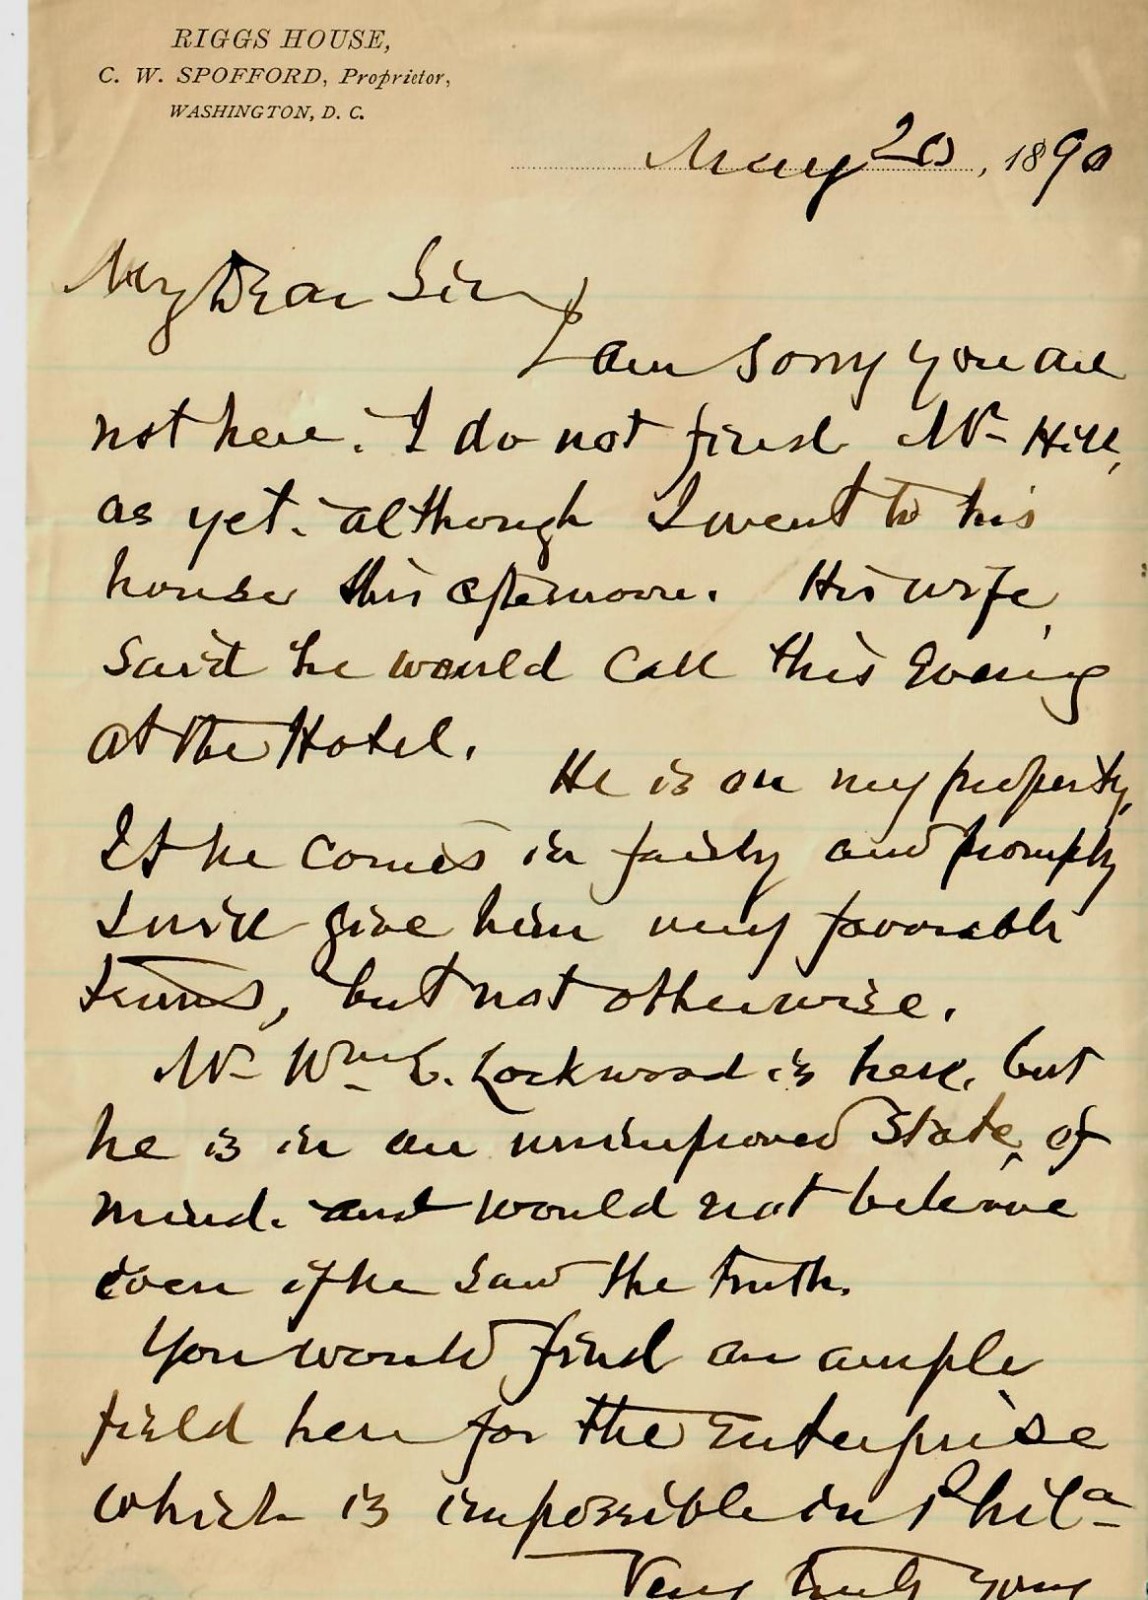 RIGGS HOUSE,
C. W. SPOFFORD, Proprietor,
WASHINGTON, D. C.
May 20, 1890
My Dear Sir,
I am sorry you are
not here. I do not find Mr Hill,
as yet. although I went to his
house this afternoon. His wife,
said he would call this Evening
at the Hotel.
He is on my property,
If he comes in fairly and promptly
I will give him very favorable
terms, but not otherwise.
Mr Wm E. Lockwood is here, but
he is in an unimproved State, of
mind. and would not believe
even if he saw the truth.
You would find an ample
field here for the Enterprise
which is impossible in Phila
Very truly yours